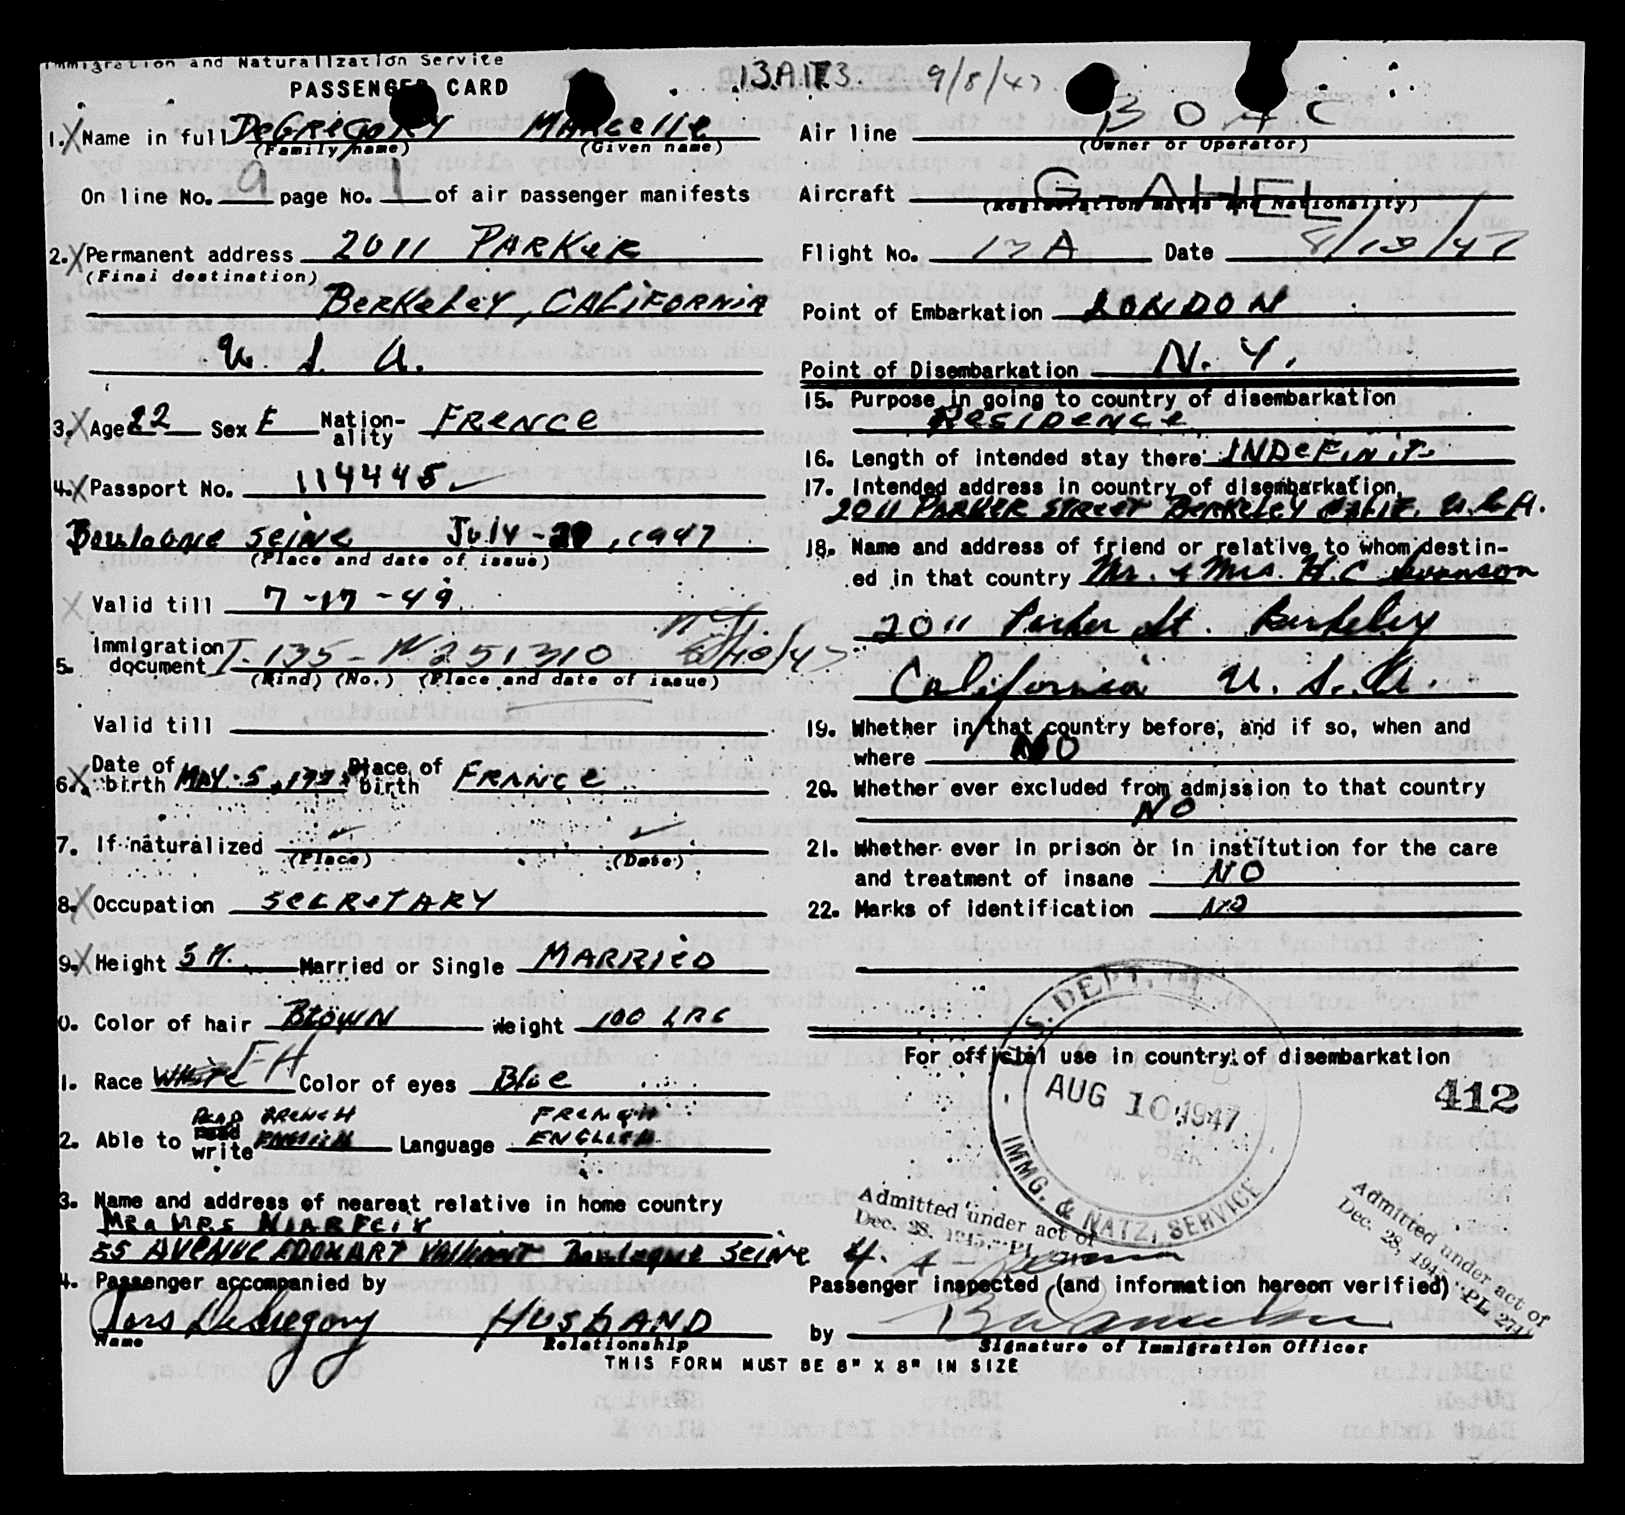 Immigration and Naturalization Service
PASSENGER CARD
13A173. 9/8/47
1. Name in full DeGREGORY MARCELLE
(Family name) (Given name)
On line No. 9 page No. 1 of air passenger manifests
2. Permanent address 2011 PARKER
(Final destination)
BERKELEY, CALIFORNIA
U. S. A.
3. Age 22 Sex F Nation-ality FRANCE
4. Passport No. 114445
Boulogne SEINE July - , 1947
(Place and date of issue)
Valid till 7-17-49
5. Immigration document I-135-N251310 /10/47
(Kind) (No.) (Place and date of issue)
Valid till
6. Date of birth MAY.5, Place of birth FRANCE
7. If naturalized
(Place) (Date)
8. Occupation SECRETARY
9. Height 5 Married or Single MARRIED
0. Color of hair BROWN Weight 100 LBS
1. Race WHITE FH Color of eyes Blue
2. Able to READ FRENCH write ENGLISH Language FRENCH ENGLISH
3. Name and address of nearest relative in home country
55 AVENUE EDOUART VAILLANT Boulogne SEINE
4. Passenger accompanied by
DeGregory HUSBAND
Name Relationship
THIS FORM MUST BE 8" X 8" IN SIZE
Air line B O A C
(Owner or Operator)
Aircraft G. AHEL
(Registration marks and Nationality)
Flight No. 13 A Date 8/10/47
Point of Embarkation LONDON
Point of Disembarkation N. Y.
15. Purpose in going to country of disembarkation
RESIDENCE
16. Length of intended stay there INDEFINIT
17. Intended address in country of disembarkation
2011 PARKER STREET BERKELEY CALIF. U.S.A.
18. Name and address of friend or relative to whom destin-
ed in that country Mr. & Mrs. H.C Swanson
2011 Parker St. Berkeley
California U. S. A.
19. Whether in that country before, and if so, when and
where NO
20. Whether ever excluded from admission to that country
NO
21. Whether ever in prison or in institution for the care
and treatment of insane NO
22. Marks of identification NO
For official use in country of disembarkation
412
S. DEPT.
AUG 10 1947
IMMG. & NATZ. SERVICE
Admitted under act of
Dec. 28, 1945 - PL 271
Admitted under act of
Dec. 28, 1945 - PL 271
Passenger inspected (and information hereon verified)
by
Signature of Immigration Officer